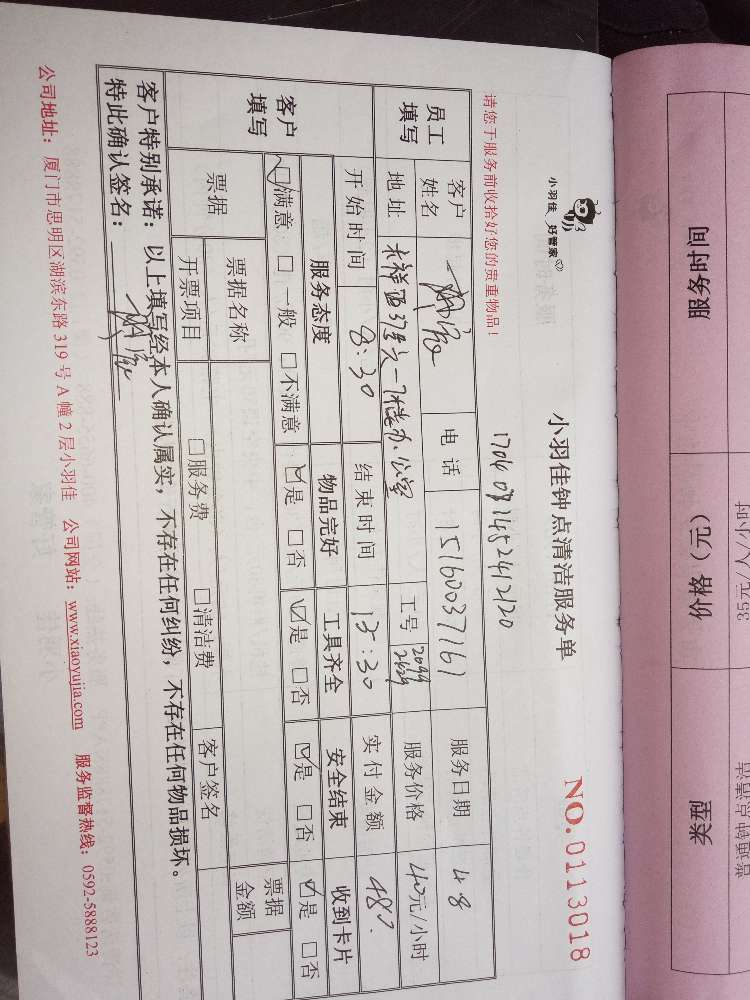 小羽佳 好管家
小羽佳钟点清洁服务单
NO.0113018
1704081452412120
请您于服务前收拾好您的贵重物品！
员工填写
客户姓名
电话 15160037161
服务日期 4.8
地址
办公室
工号 2099
服务价格 40元/小时
开始时间 8:30
结束时间 13:30
实付金额 480
客户填写
服务态度 物品完好 工具齐全 安全结束 收到卡片
☑满意 □一般 □不满意 ☑是 □否 ☑是 □否 ☑是 □否 ☑是 □否
票据
票据名称
票据金额
开票项目 □服务费 □清洁费 客户签名
客户特别承诺：以上填写经本人确认属实，不存在任何纠纷，不存在任何物品损坏。
特此确认签名：
公司地址：厦门市思明区湖滨东路 319 号 A 幢 2 层小羽佳 公司网站：www.xiaoyujia.com 服务监督热线：0592-5888123
服务时间 价格（元） 类型
35元/人/小时